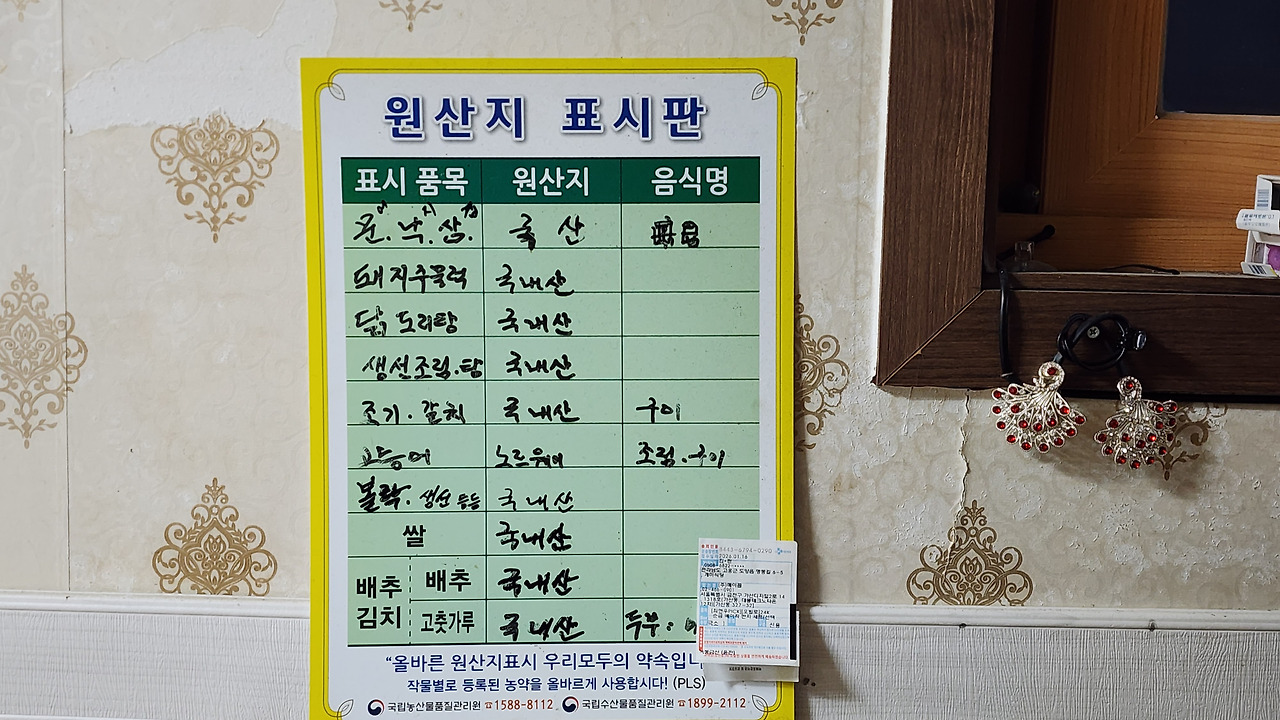 원산지 표시판
표시 품목 원산지 음식명
문어.낙지.삼겹 국 산
돼지주물럭 국내산
닭도리탕 국내산
생선조림.탕 국내산
조기.갈치 국내산 구이
고등어 노르웨이 조림.구이
볼락.생선 등등 국내산
쌀 국내산
배추김치 배추 국내산
고춧가루 국내산 두부.
"올바른 원산지표시 우리모두의 약속입니
작물별로 등록된 농약을 올바르게 사용합시다! (PLS)
국립농산물품질관리원 ☎1588-8112 국립수산물품질관리원 ☎1899-2112
6443-6794-0290
2026.01.16
전라남도 고흥군 도양읍